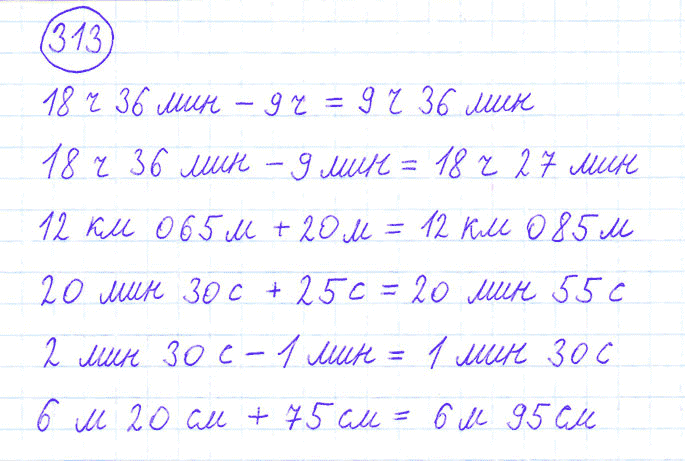 313
18 ч 36 мин - 9 ч = 9 ч 36 мин
18 ч 36 мин - 9 мин = 18 ч 27 мин
12 км 065 м + 20 м = 12 км 085 м
20 мин 30 с + 25 с = 20 мин 55 с
2 мин 30 с - 1 мин = 1 мин 30 с
6 м 20 см + 75 см = 6 м 95 см